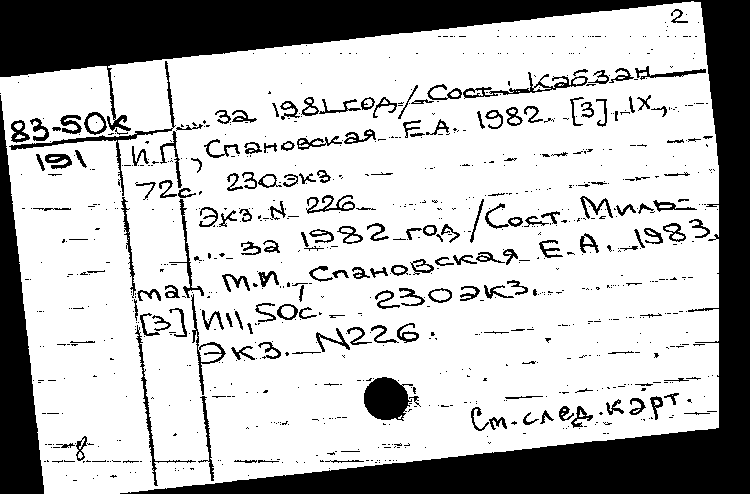 2
83-50к .... за 1981 год/Сост.: Кабзан
191 И.Г., Спановская Е.А. 1982. [3], IX,
72с. 230экз.
Экз. N 226
... за 1982 год/Сост. Миль-
ман М.И., Спановская Е.А. 1983.
[3], VIII, 50с. 230экз.
Экз. N226.
См. след. карт.
8